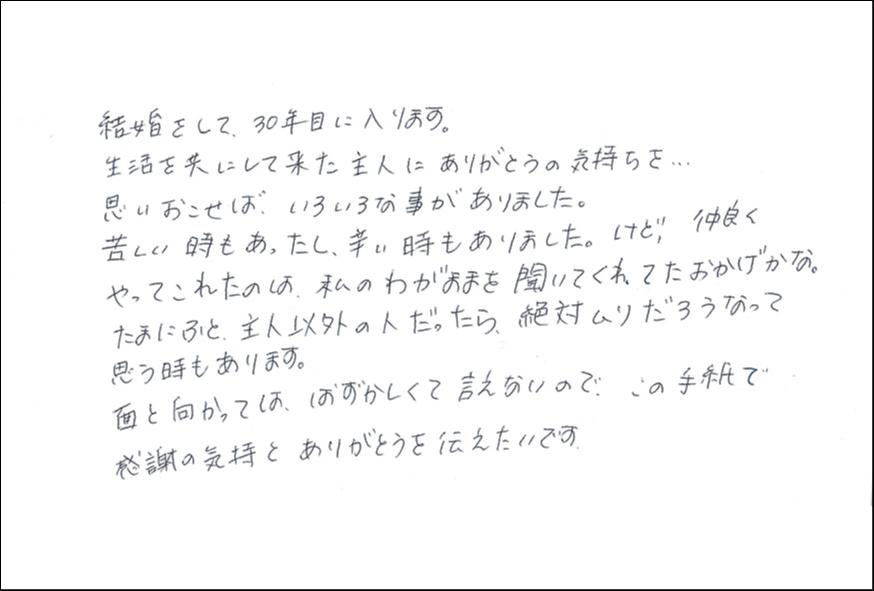 結婚をして、30年目に入ります。
生活を共にして来た主人に ありがとうの気持ちを…
思いおこせば、いろいろな事がありました。
苦しい時もあったし、辛い時もありました。けど、仲良く
やってこれたのは、私のわがままを聞いてくれてたおかげかな。
たまにふと、主人以外の人だったら、絶対ムリだろうなって
思う時もあります。
面と向かっては、はずかしくて言えないので、この手紙で
感謝の気持と ありがとうを伝えたいです。